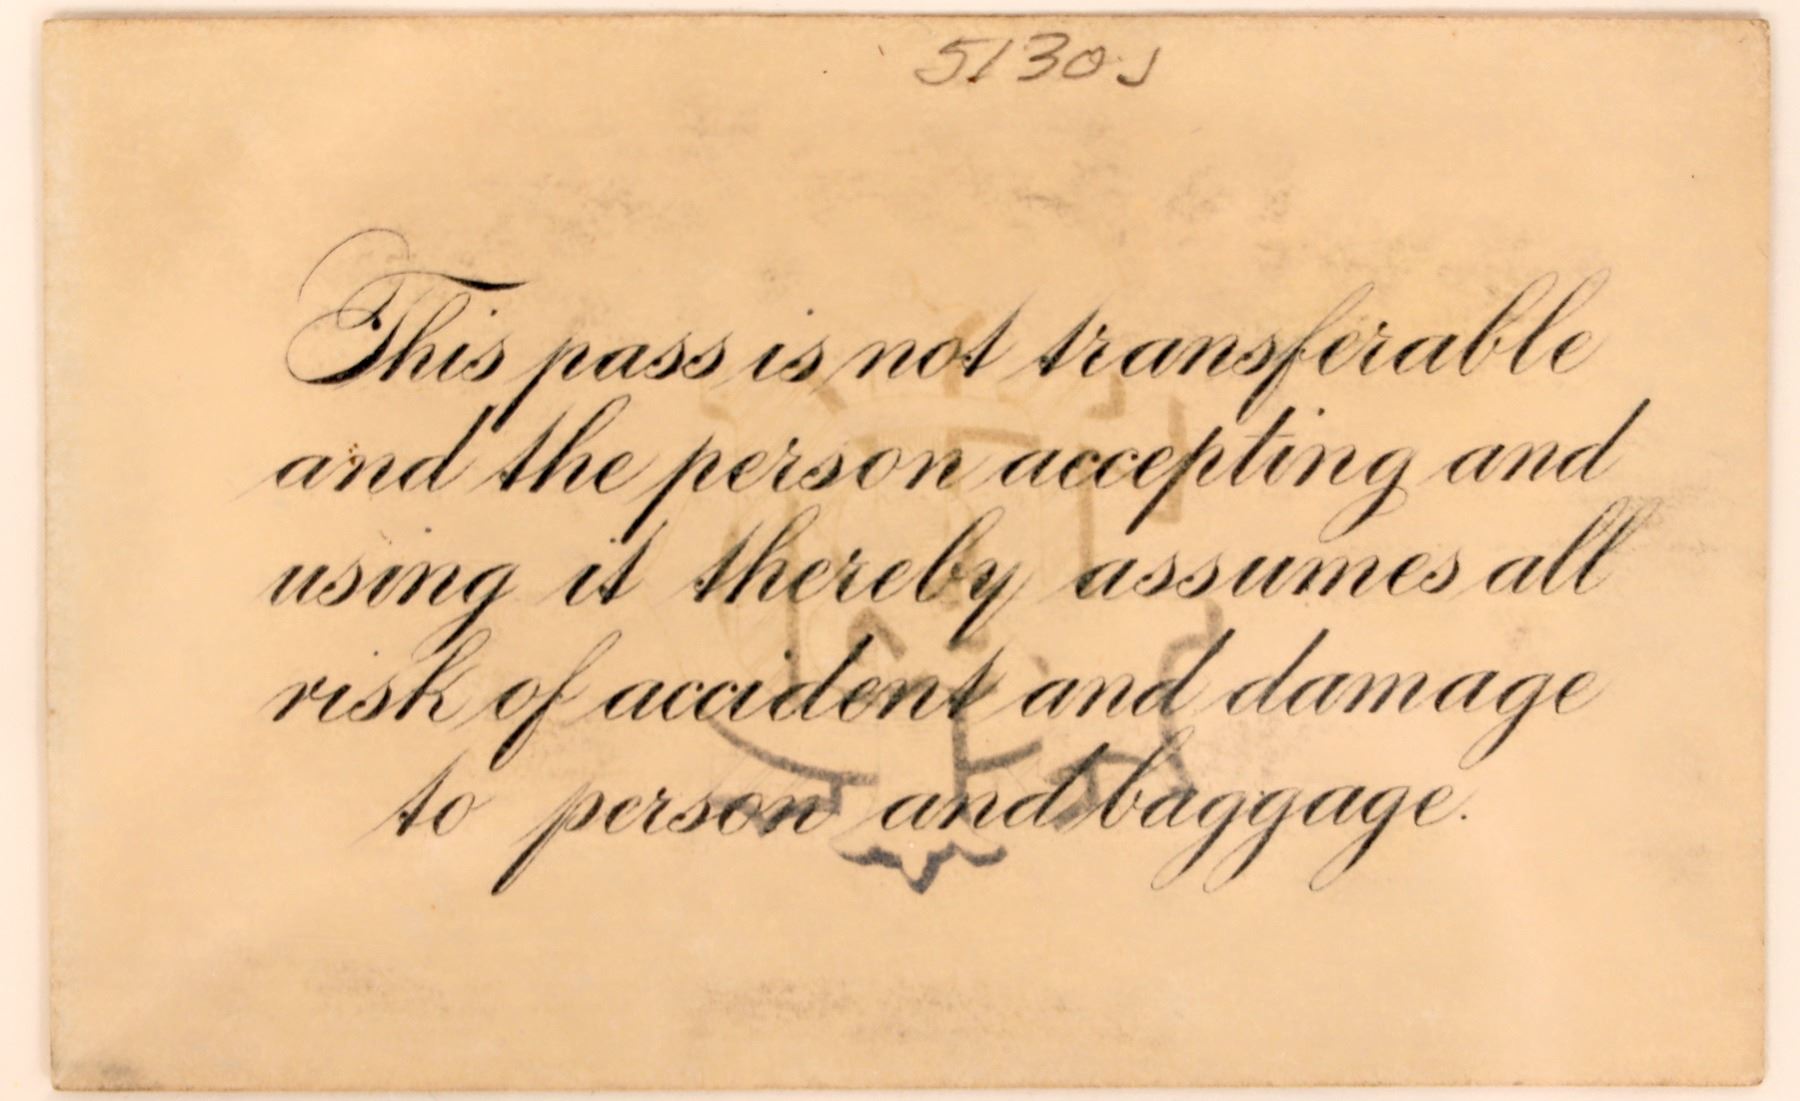 5130J
This pass is not transferable
and the person accepting and
using it thereby assumes all
risk of accident and damage
to person and baggage.